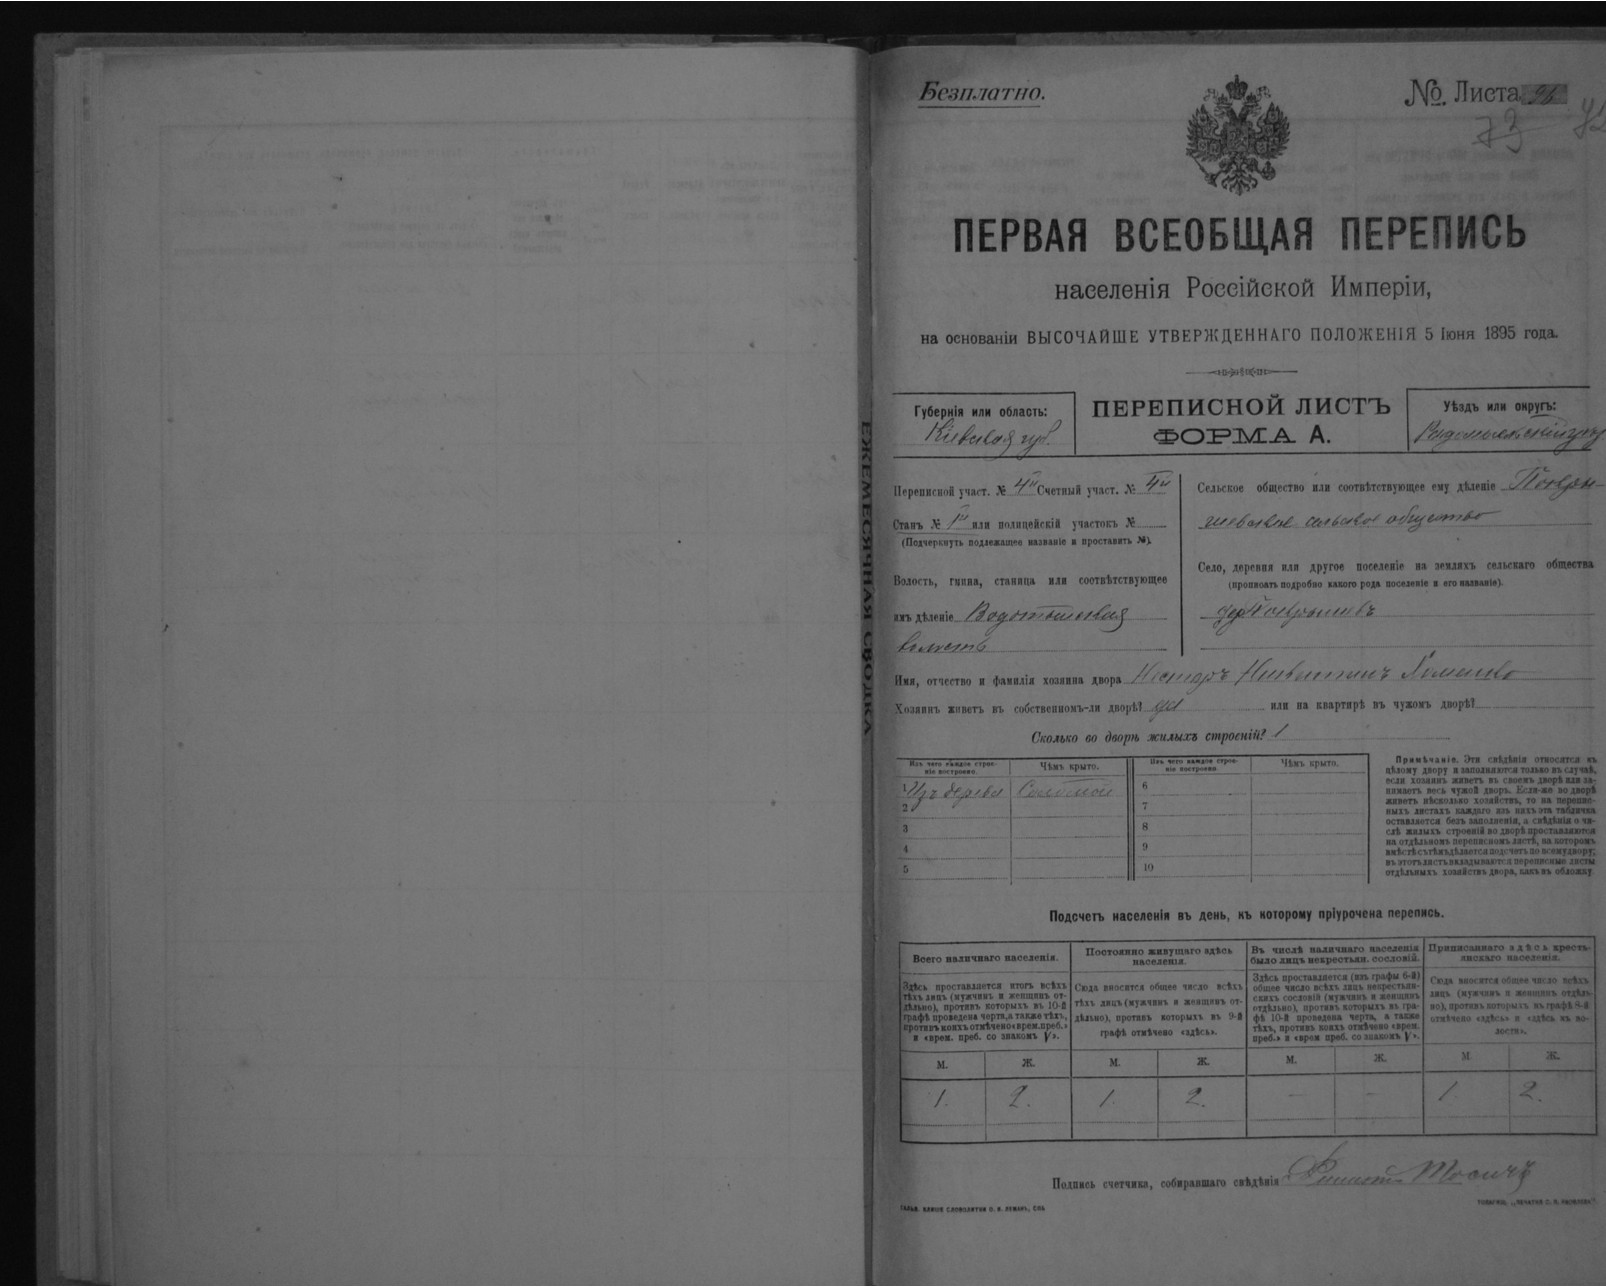 Безплатно.
№ Листа 96
73
ПЕРВАЯ ВСЕОБЩАЯ ПЕРЕПИСЬ
населенія Россійской Имперіи,
на основаніи ВЫСОЧАЙШЕ УТВЕРЖДЕННАГО ПОЛОЖЕНІЯ 5 Іюня 1895 года.
Губернія или область:
Кіевская губ.
ПЕРЕПИСНОЙ ЛИСТЪ
ФОРМА А.
Уѣздъ или округъ:
Радомысльскій уѣзд
Переписной участ. № 4й Счетный участ. № 4й
Станъ № 1й или полицейскій участокъ №
(Подчеркнуть подлежащее названіе и проставить №).
Волость, гмина, станица или соотвѣтствующее
имъ дѣленіе
волость
Сельское общество или соотвѣтствующее ему дѣленіе
сельское общество
Село, деревня или другое поселеніе на земляхъ сельскаго общества
(прописать подробно какого рода поселеніе и его названіе).
Имя, отчество и фамилія хозяина двора Несторъ Хоменко
Хозяинъ живетъ въ собственномъ-ли дворѣ? да или на квартирѣ въ чужомъ дворѣ?
Сколько во дворѣ жилыхъ строеній? 1
Изъ чего каждое строе-
ніе построено.
Чѣмъ крыто.
1 Изъ дерева Соломой
2
3
4
5
Изъ чего каждое строе-
ніе построено.
Чѣмъ крыто.
6
7
8
9
10
Примѣчаніе. Эти свѣдѣнія относятся къ
цѣлому двору и заполняются только въ случаѣ,
если хозяинъ живетъ въ своемъ дворѣ или за-
нимаетъ весь чужой дворъ. Если-же во дворѣ
живетъ нѣсколько хозяйствъ, то на перепис-
ныхъ листахъ каждаго изъ нихъ эта табличка
оставляется безъ заполненія, а свѣдѣнія о чи-
слѣ жилыхъ строеній во дворѣ проставляются
на отдѣльномъ переписномъ листѣ, на которомъ
вмѣстѣ съ тѣмъ дѣлается подсчетъ по всему двору;
въ этотъ листъ вкладываются переписные листы
отдѣльныхъ хозяйствъ двора, какъ въ обложку.
Подсчетъ населенія въ день, къ которому пріурочена перепись.
Всего наличнаго населенія.
Здѣсь проставляется итогъ всѣхъ
тѣхъ лицъ (мужчинъ и женщинъ от-
дѣльно), противъ которыхъ въ 10-й
графѣ проведена черта, а также тѣхъ,
противъ коихъ отмѣчено «врем. преб.»
и «врем. преб. со знакомъ V».
М. Ж.
1. 2.
Постоянно живущаго здѣсь
населенія.
Сюда вносится общее число всѣхъ
тѣхъ лицъ (мужчинъ и женщинъ от-
дѣльно), противъ которыхъ въ 9-й
графѣ отмѣчено «здѣсь».
М. Ж.
1. 2.
Въ числѣ наличнаго населенія
было лицъ некрестьян. сословій.
Здѣсь проставляется (изъ графы 6-й)
общее число всѣхъ лицъ некрестьян-
скихъ сословій (мужчинъ и женщинъ
отдѣльно), противъ которыхъ въ гра-
фѣ 10-й проведена черта, а также
тѣхъ, противъ коихъ отмѣчено «врем.
преб.» и «врем преб. со знакомъ V».
М. Ж.
– –
Приписаннаго здѣсь кресть-
янскаго населенія.
Сюда вносится общее число всѣхъ
лицъ (мужчинъ и женщинъ отдѣль-
но), противъ которыхъ въ графѣ 8-й
отмѣчено «здѣсь» и «здѣсь въ во-
лости».
М. Ж.
1. 2.
Подпись счетчика, собиравшаго свѣдѣнія
ЕЖЕМЕСЯЧНАЯ СВОДКА